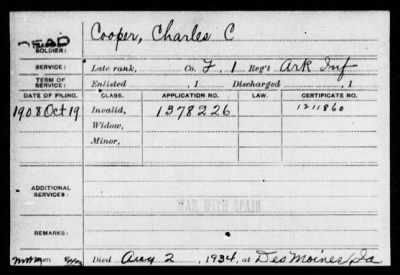 DEAD Cooper, Charles C
SOLDIER:
SERVICE: Late rank, Co. F, 1 Reg't Ark Inf
TERM OF SERVICE: Enlisted , 1 Discharged , 1
DATE OF FILING. CLASS. APPLICATION NO. LAW. CERTIFICATE NO.
1908 Oct 19 Invalid, 1378226 1211860
Widow,
Minor,
ADDITIONAL SERVICES:
WAR WITH SPAIN
REMARKS:
Died Aug 2, 1934, at Des Moines, Ia